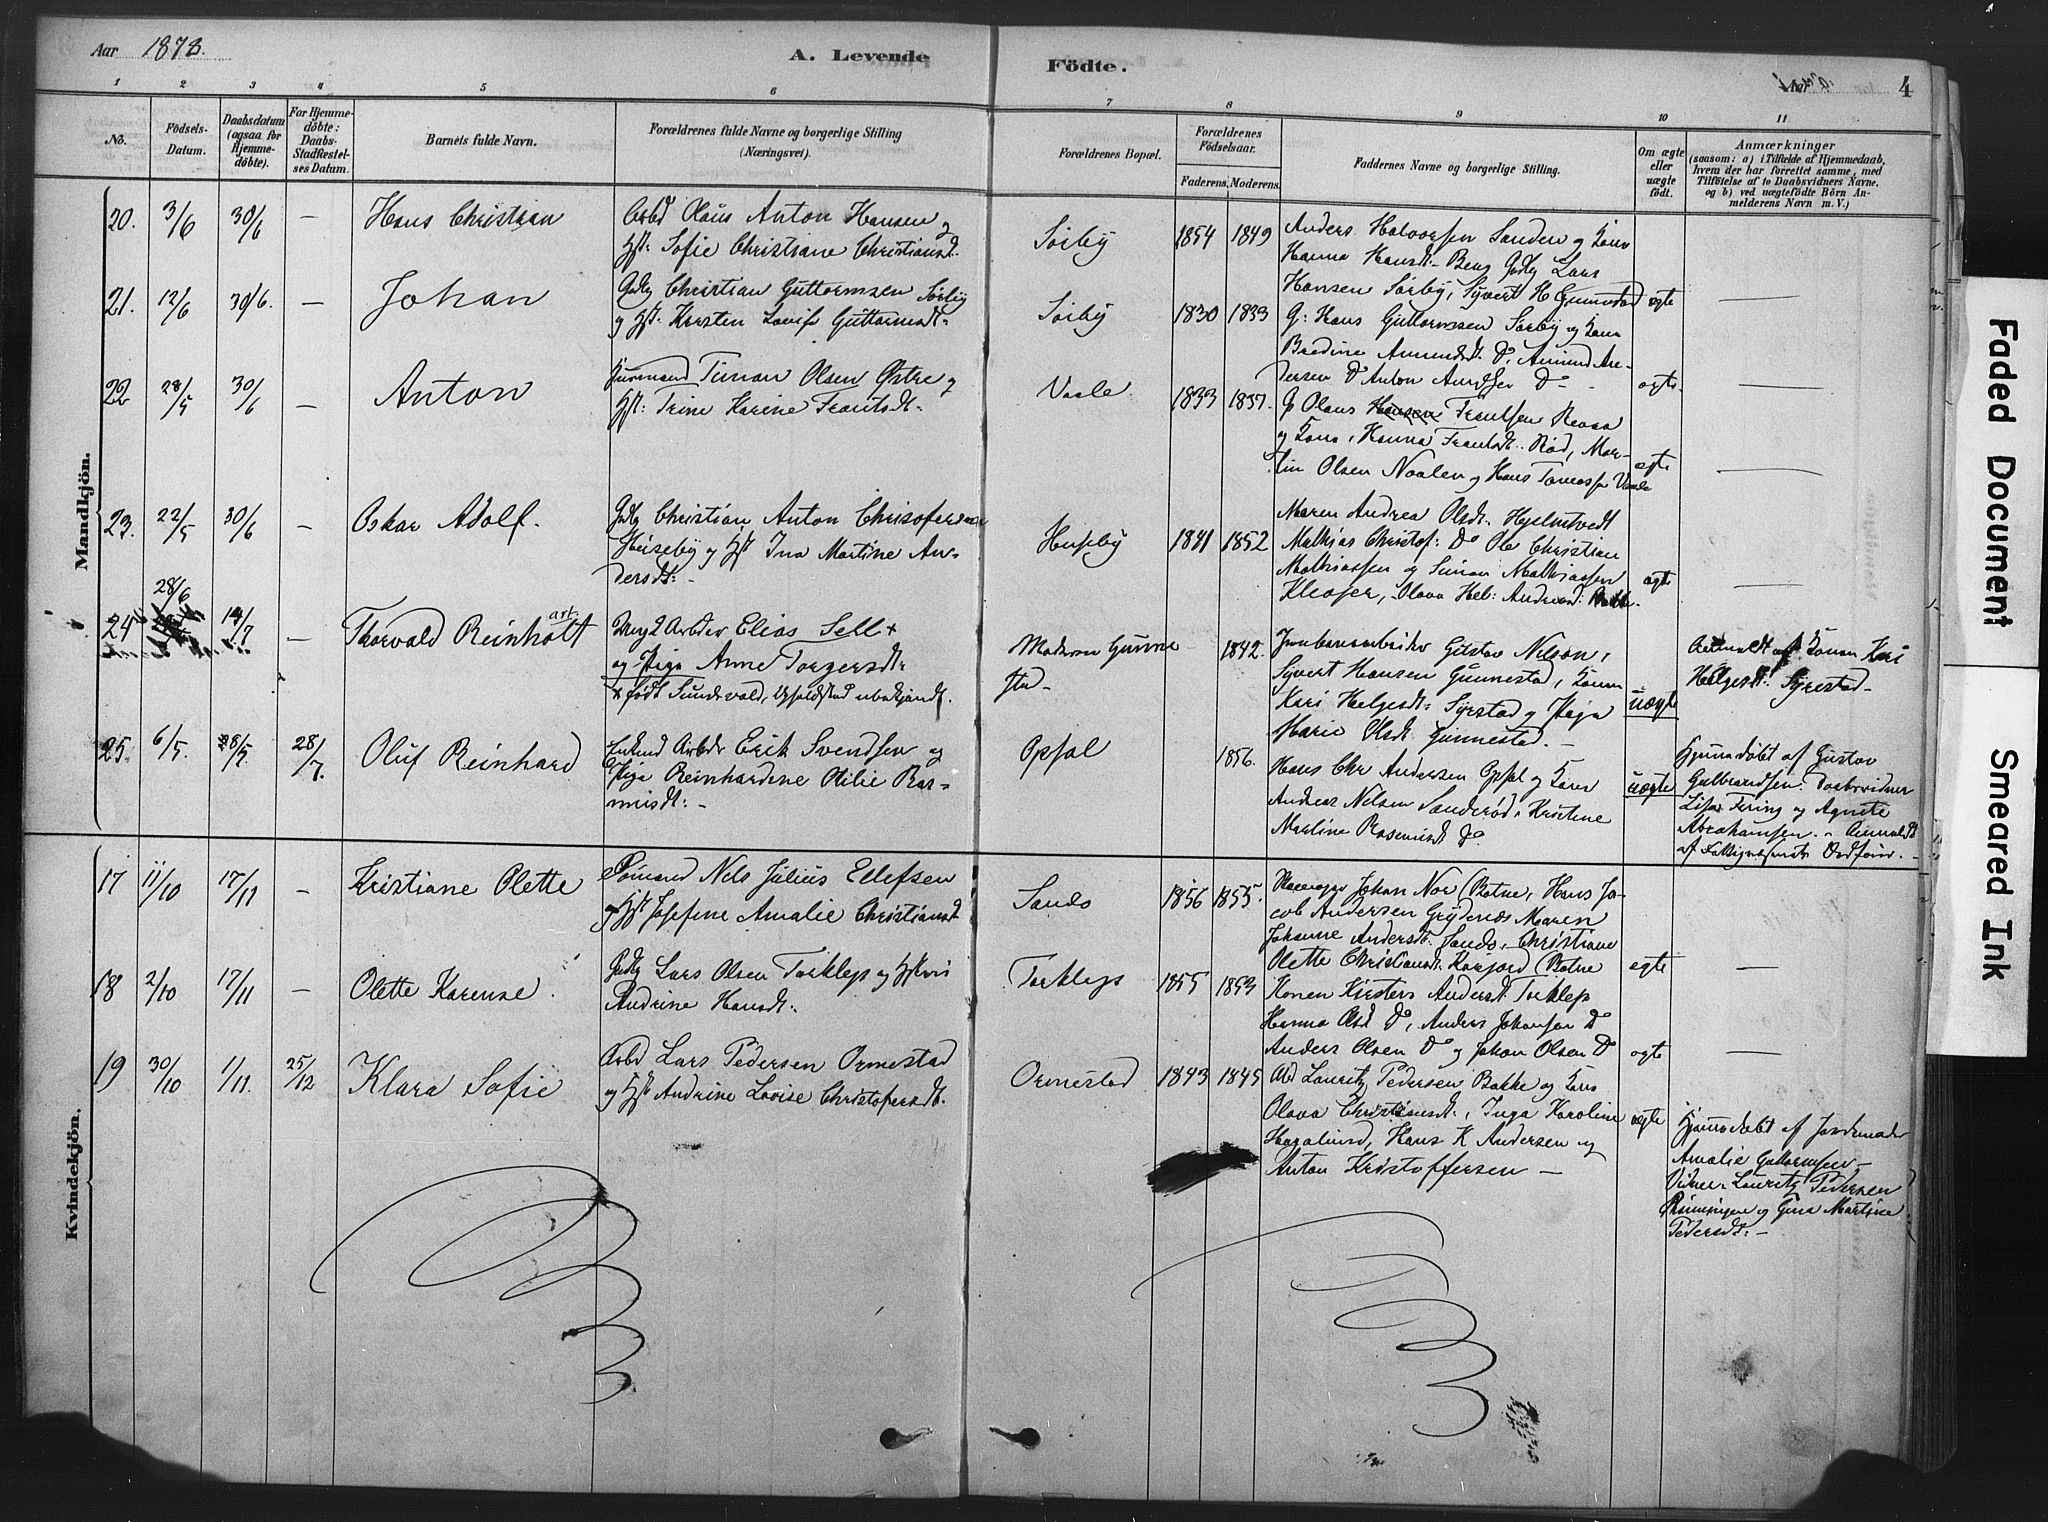 Aar 1878.
A. Levende
Födte.
4
1 2 3 4 5 6 7 8 9 10 11
No.
Födsels-Datum.
Daabsdatum (ogsaa for Hjemme-döbte).
For Hjemme-döbte: Daabs-Stadfæstel-ses Datum.
Barnets fulde Navn.
Forældrenes fulde Navne og borgerlige Stilling
(Næringsvei).
Forældrenes Bopæl.
Forældrenes Födselsaar.
Faderens. Moderens.
Faddernes Navne og borgerlige Stilling.
Om ægte eller uægte födt.
Anmærkninger
(saasom: a) i Tilfælde af Hjemmedaab,
hvem der har forrettet samme, med
Tilföielse af to Daabsvidners Navne.
og b) ved uægtefödte Börn An-
melderens Navn m. V.)
Mandkjön.
20. 3/6 30/6 — Hans Christian
Arbd Olaus Anton Hansen og
Hst: Sofie Christiane Christiansdt.
Sörby 1854 1849
Anders Halvorsen Sanden og Kone
Hanna Hansdt- Berg Gdbg Lars
Hansen Sörby, Syvert H Gunnestad ægte
21. 12/6 30/6. — Johan
Gdbg Christian Guttormsen Sörby
og Hst: Kirsten Lovise Guttormsdt:
Sörby 1830 1833
G: Hans Guttormsen Sörby og Kone
Bredine Amundsdt. Do, Amund An-
dersen Do Anton Do - ægte
22 28/5 30/6 — Anton
Husmand Timan Olsen Østre og
Hst: Trine Karine Frantsdt:
Vaale 1833 1837.
G Olaus Hansen Frantsen Revaa
og Kone, Hanna Frantsdt. Röd, Mar-
tin Olsen Naalen og Hans Vaale
ægte —
23. 22/5 30/6 — Oskar Adolf.
Gdbg Christian Anton Chrisofersen
Huseby og Hst Ina Martine An-
dersdt: -
Huseby 1841 1852
Maren Andrea Olsdt. Hjelmtvedt
Mathias Christof: Do Ole Christian
Mathiassen og Simon Mathiassen
Kleoser, Olava Hel: Andrea
ægte —
28/6
24 14/7 — Thorvald Reinholt
Elias Sell +
og Pige Anne Torgersdt:
+ Födt Sundsvald, Opholdsted ubekjendt.
Moderen Gunne-
stad- 1842.
Gustav Nilson,
Syvert Hansen Gunnestad, Konen
Kari Helgesdt: Syrstad og Pige
Marie Olsdt. Gunnestad. -
uægte
Anmeldt af Konen Kari
Helgesdt: Syrestad-
25. 6/5. 28/5 28/7. Oluf Reinhard
Enkmd Arbdr Erik Svendsen og
Pige Reinhardine Otilie Ras-
musdt: -
Opsal 1856.
Hans Chr Andersen Opsal og Kone
Andreas Nelsen Sanderöd, Kristine
Martine Rasmusdt Do.
uægte
Hjemmedöbt af Gustav
Gulbrandsen. Daabsvidner
Lisa Fering og Agnete
Abrahamsen. - Anmeldt
af Ordförer. -
Kvindekjön.
17 11/10 17/11 — Kristiane Olette
Sömand Nels Julius Ellefsen
og Hst Josefine Amalie Christiansdt
Sando 1856 1855.
Johan Noe (Botne, Hans Ja-
cob Andersen Grydenæs Maren
Johanne Andersdt. Sando, Christiane
Olette Christiansdt. Kosjord (Botne
ægte —
18 2/10 17/11 — Olette Karense.
Gdbg Lars Olsen Torkleps og
Andrine Hansdt:
Torkleps 1855 1853
Konen Kirsten Andersdt Torkleps
Hanna Olsd Do, Anders Johansen Do
Anders Olsen Do og Johan Olsen Do
ægte —
19 30/10 1/11. 25/12 Klara Sofie
Arbd Lars Pedersen Ormestad
og Hst Andrine Lovise Christofersdt.
Ormestad 1843 1845
Abd Lauritz Pedersen Bakke og Kone
Olava Christiansdt., Inga Karoline
Haralund, Hans K Andersen og
Anton Kristoffersen —
ægte
Hjemmedöbt af Jordemoder
Amalie Guttormsen-
Vidner: Lauritz Pedersen
og Gina Martine
Pedersdt: -
Faded Document
Smeared Ink